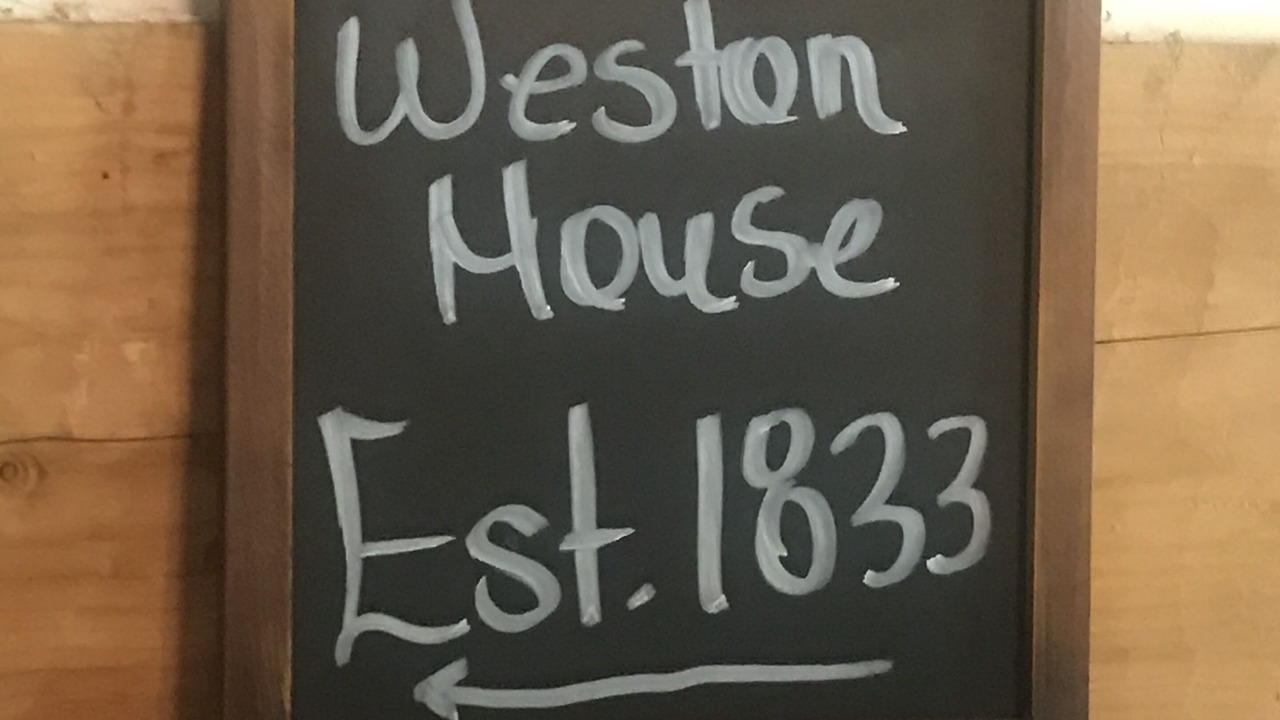 Weston
House
Est. 1833